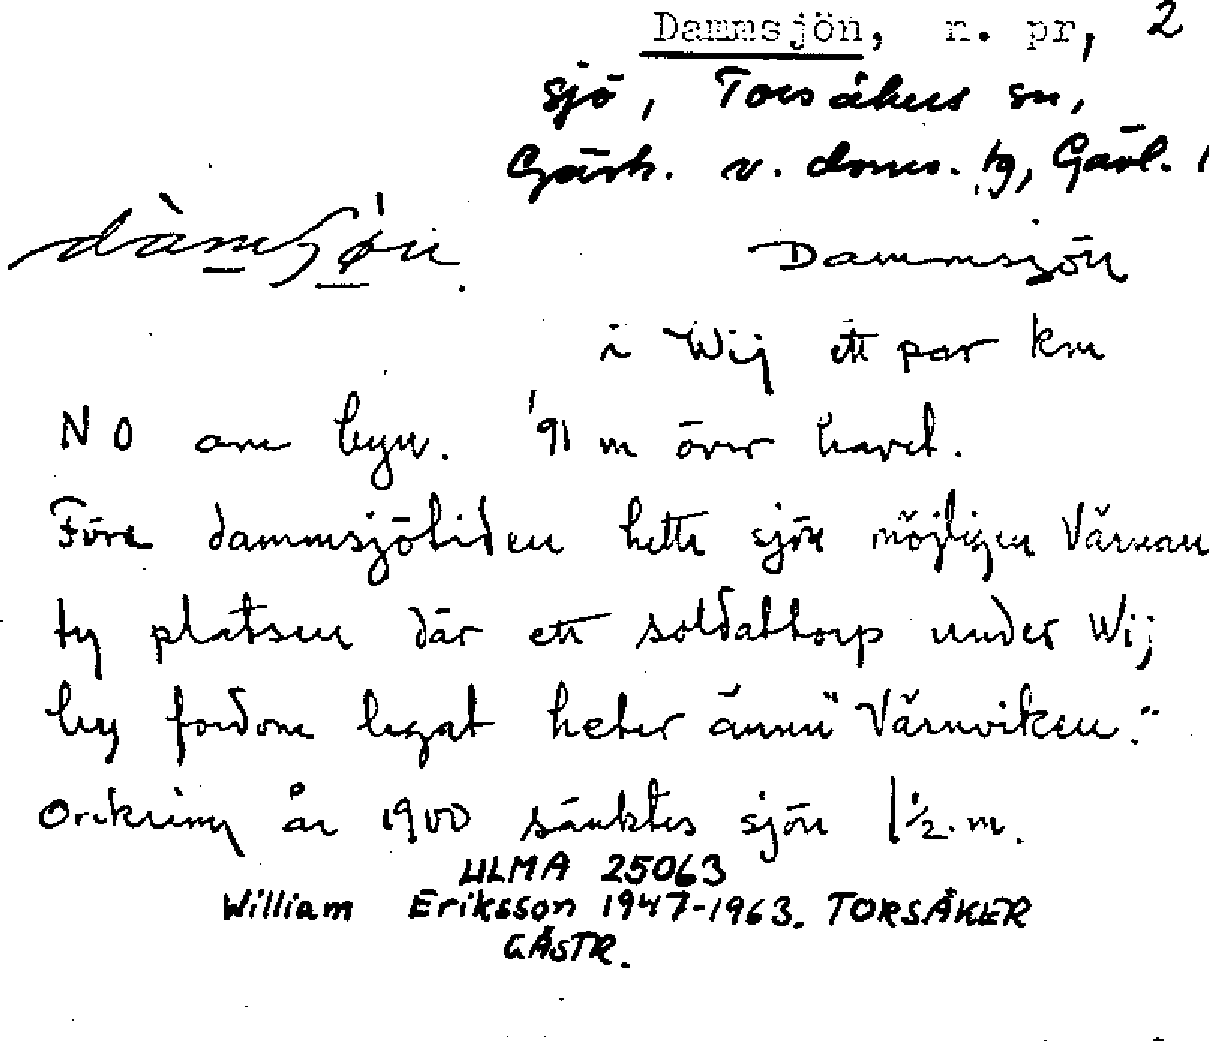 Dammsjön, n. pr, 2
sjö, Torsåkers sn,
Gästr. v. doms. tg, Gävl. l
dàmʃǿn.
Dammsjön
i Wij ett par km
NO om byn. 91 m över havet.
Före dammsjötiden hette sjön möjligen Värnan
ty platsen där ett soldattorp under Wij
by fordom legat heter ännu "Värnviken."
Omkring år 1900 sänktes sjön 1½ m.
ULMA 25063
William Eriksson 1947-1963. TORSÅKER
GÄSTR.